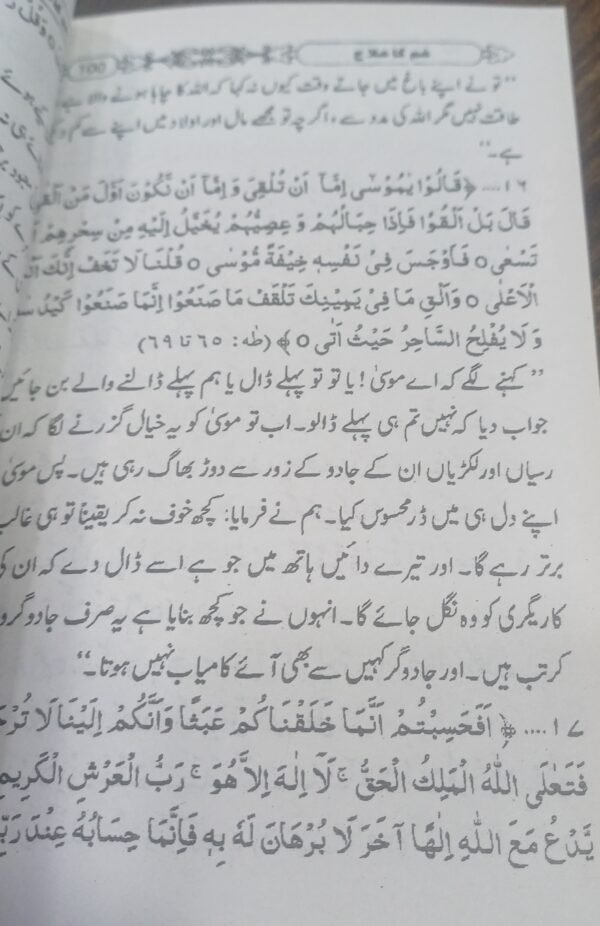 غم کا علاج 100
”تو نے اپنے باغ میں جاتے وقت کیوں نہ کہا کہ اللہ کا چاہا ہونے والا ہے
طاقت نہیں مگر اللہ کی مدد سے، اگرچہ تو مجھے مال اور اولاد میں اپنے سے کم
ہے۔“
١٦.... ﴿قَالُوْا يٰمُوْسٰى اِمَّآ اَنْ تُلْقِىَ وَ اِمَّآ اَنْ نَّكُوْنَ اَوَّلَ مَنْ اَلْقٰى
قَالَ بَلْ اَلْقُوْا فَاِذَا حِبَالُهُمْ وَ عِصِيُّهُمْ يُخَيَّلُ اِلَيْهِ مِنْ سِحْرِهِمْ
تَسْعٰى ۝ فَاَوْجَسَ فِىْ نَفْسِهٖ خِيْفَةً مُّوْسٰى ۝ قُلْنَا لَا تَخَفْ اِنَّكَ
الْاَعْلٰى ۝ وَاَلْقِ مَا فِىْ يَمِيْنِكَ تَلْقَفْ مَا صَنَعُوْا اِنَّمَا صَنَعُوْا كَيْدُ
وَ لَا يُفْلِحُ السَّاحِرُ حَيْثُ اَتٰى ۝﴾ (طٰهٰ: ٦٥ تا ٦٩)
”کہنے لگے کہ اے موسیٰ! یا تو تو پہلے ڈال یا ہم پہلے ڈالنے والے بن جائیں
جواب دیا کہ نہیں تم ہی پہلے ڈالو۔ اب تو موسیٰ کو یہ خیال گزرنے لگا کہ ان
رسیاں اور لکڑیاں ان کے جادو کے زور سے دوڑ بھاگ رہی ہیں۔ پس موسیٰ
اپنے دل ہی میں ڈر محسوس کیا۔ ہم نے فرمایا: کچھ خوف نہ کر یقیناً تو ہی غالب
برتر رہے گا۔ اور تیرے دائیں ہاتھ میں جو ہے اسے ڈال دے کہ ان کی
کاریگری کو وہ نگل جائے گا۔ انہوں نے جو کچھ بنایا ہے یہ صرف جادوگروں
کرتب ہیں۔ اور جادوگر کہیں سے بھی آئے کامیاب نہیں ہوتا۔“
١٧.... ﴿اَفَحَسِبْتُمْ اَنَّمَا خَلَقْنَاكُمْ عَبَثًا وَّاَنَّكُمْ اِلَيْنَا لَا
فَتَعٰلَى اللّٰهُ الْمَلِكُ الْحَقُّ ۚ لَآ اِلٰهَ اِلَّا هُوَ ۚ رَبُّ الْعَرْشِ الْكَرِيْمِ
يَّدْعُ مَعَ اللّٰهِ اِلٰهًا آخَرَ لَا بُرْهَانَ لَهٗ بِهٖ فَاِنَّمَا حِسَابُهٗ عِنْدَ رَبِّهٖ